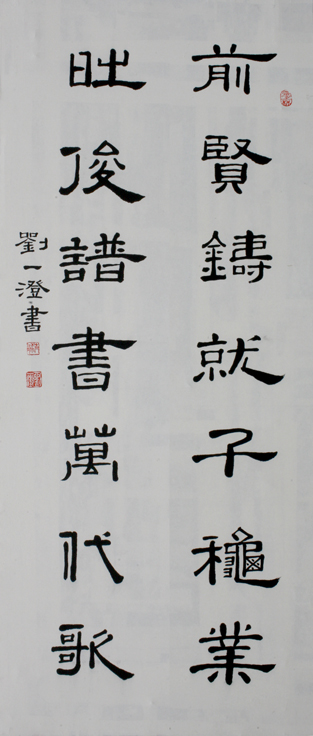 前賢鑄就千龝業
時俊譜書萬代歌
劉一澄書